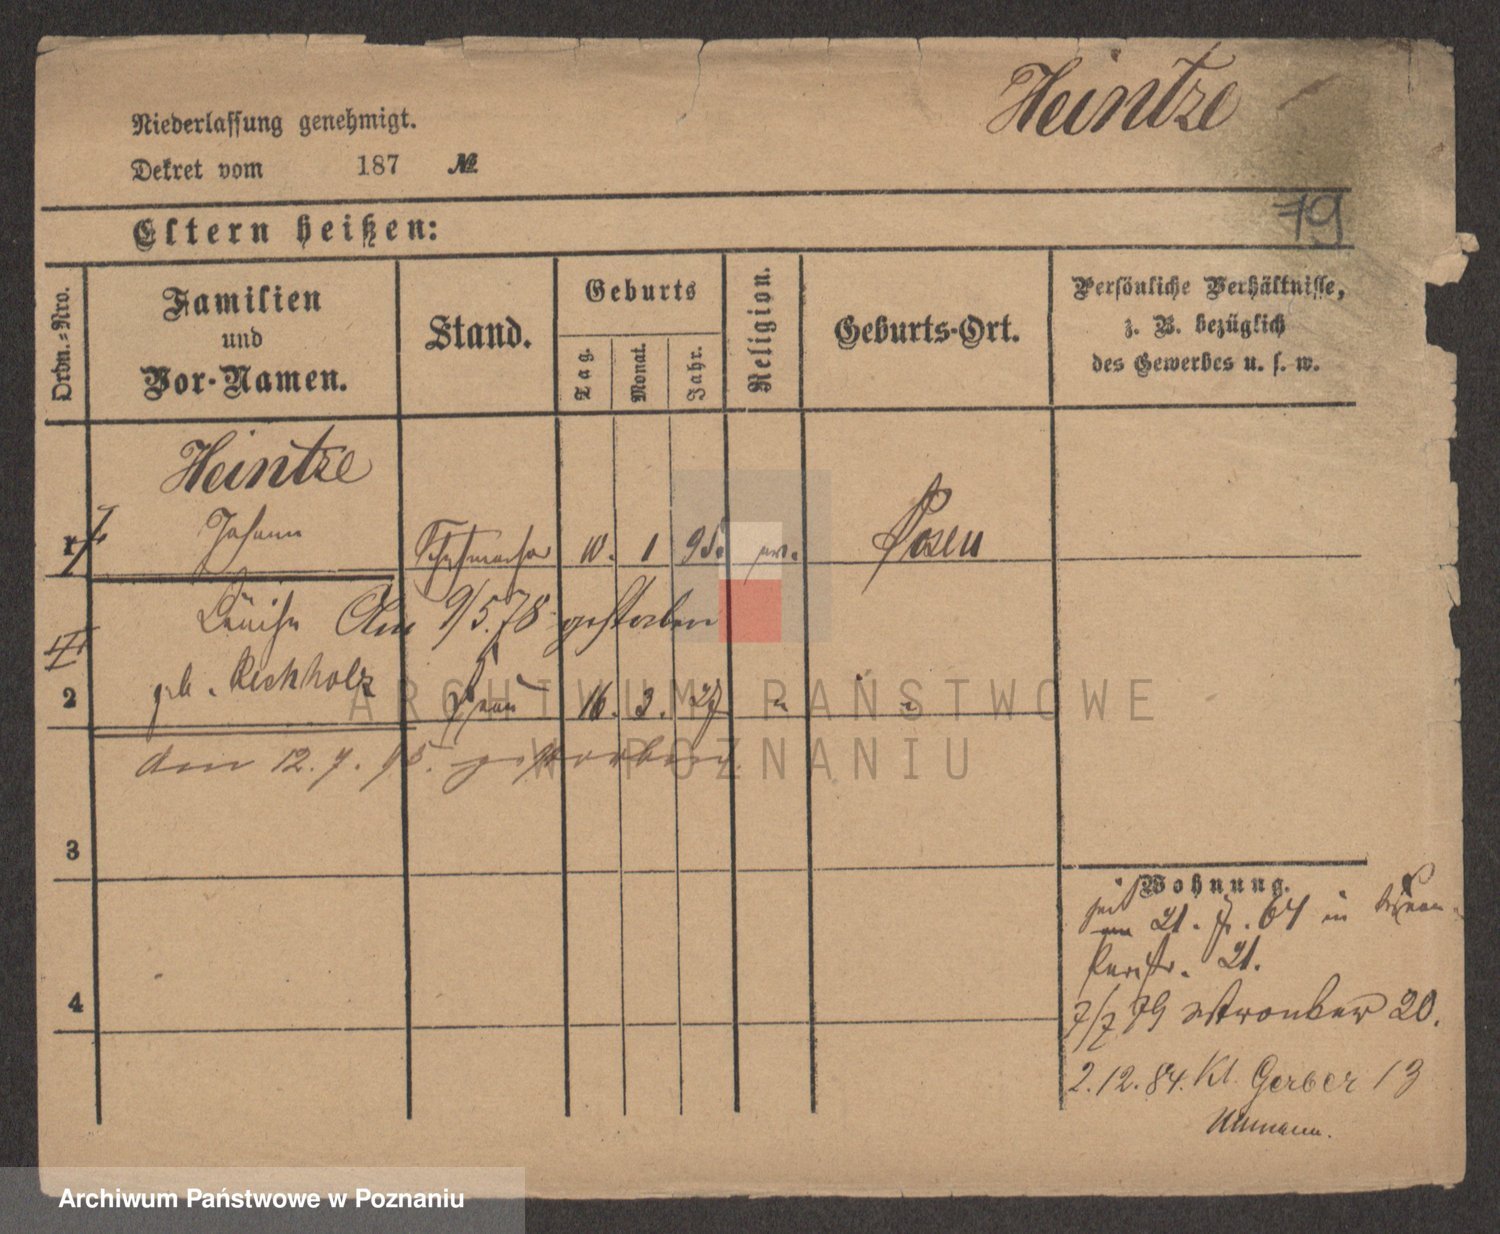 Heintze
Niederlassung genehmigt.
Dekret vom 187 №
79
Eltern heißen:
Ordn.-Nro.
Familien
und
Vor-Namen.
Stand.
Geburts
Tag.
Monat.
Jahr.
Religion.
Geburts-Ort.
Persönliche Verhältnisse,
z. B. bezüglich
des Gewerbes u. s. w.
Heintze
1 I Johann Schuhmacher 10. 1 95. ev. Posen
Louise Am 9/5.78 gestorben
II
2 geb. Reichholz Frau 16. 3. 27 " "
am 12. 7. 95. gestorben.
3
Wohnung.
seit 21. 7. 64 in
21.
4
7/7 79 Wronker 20.
2.12.84. Kl. Gerber 13
ARCHIWUM PAŃSTWOWE
W POZNANIU
Archiwum Państwowe w Poznaniu